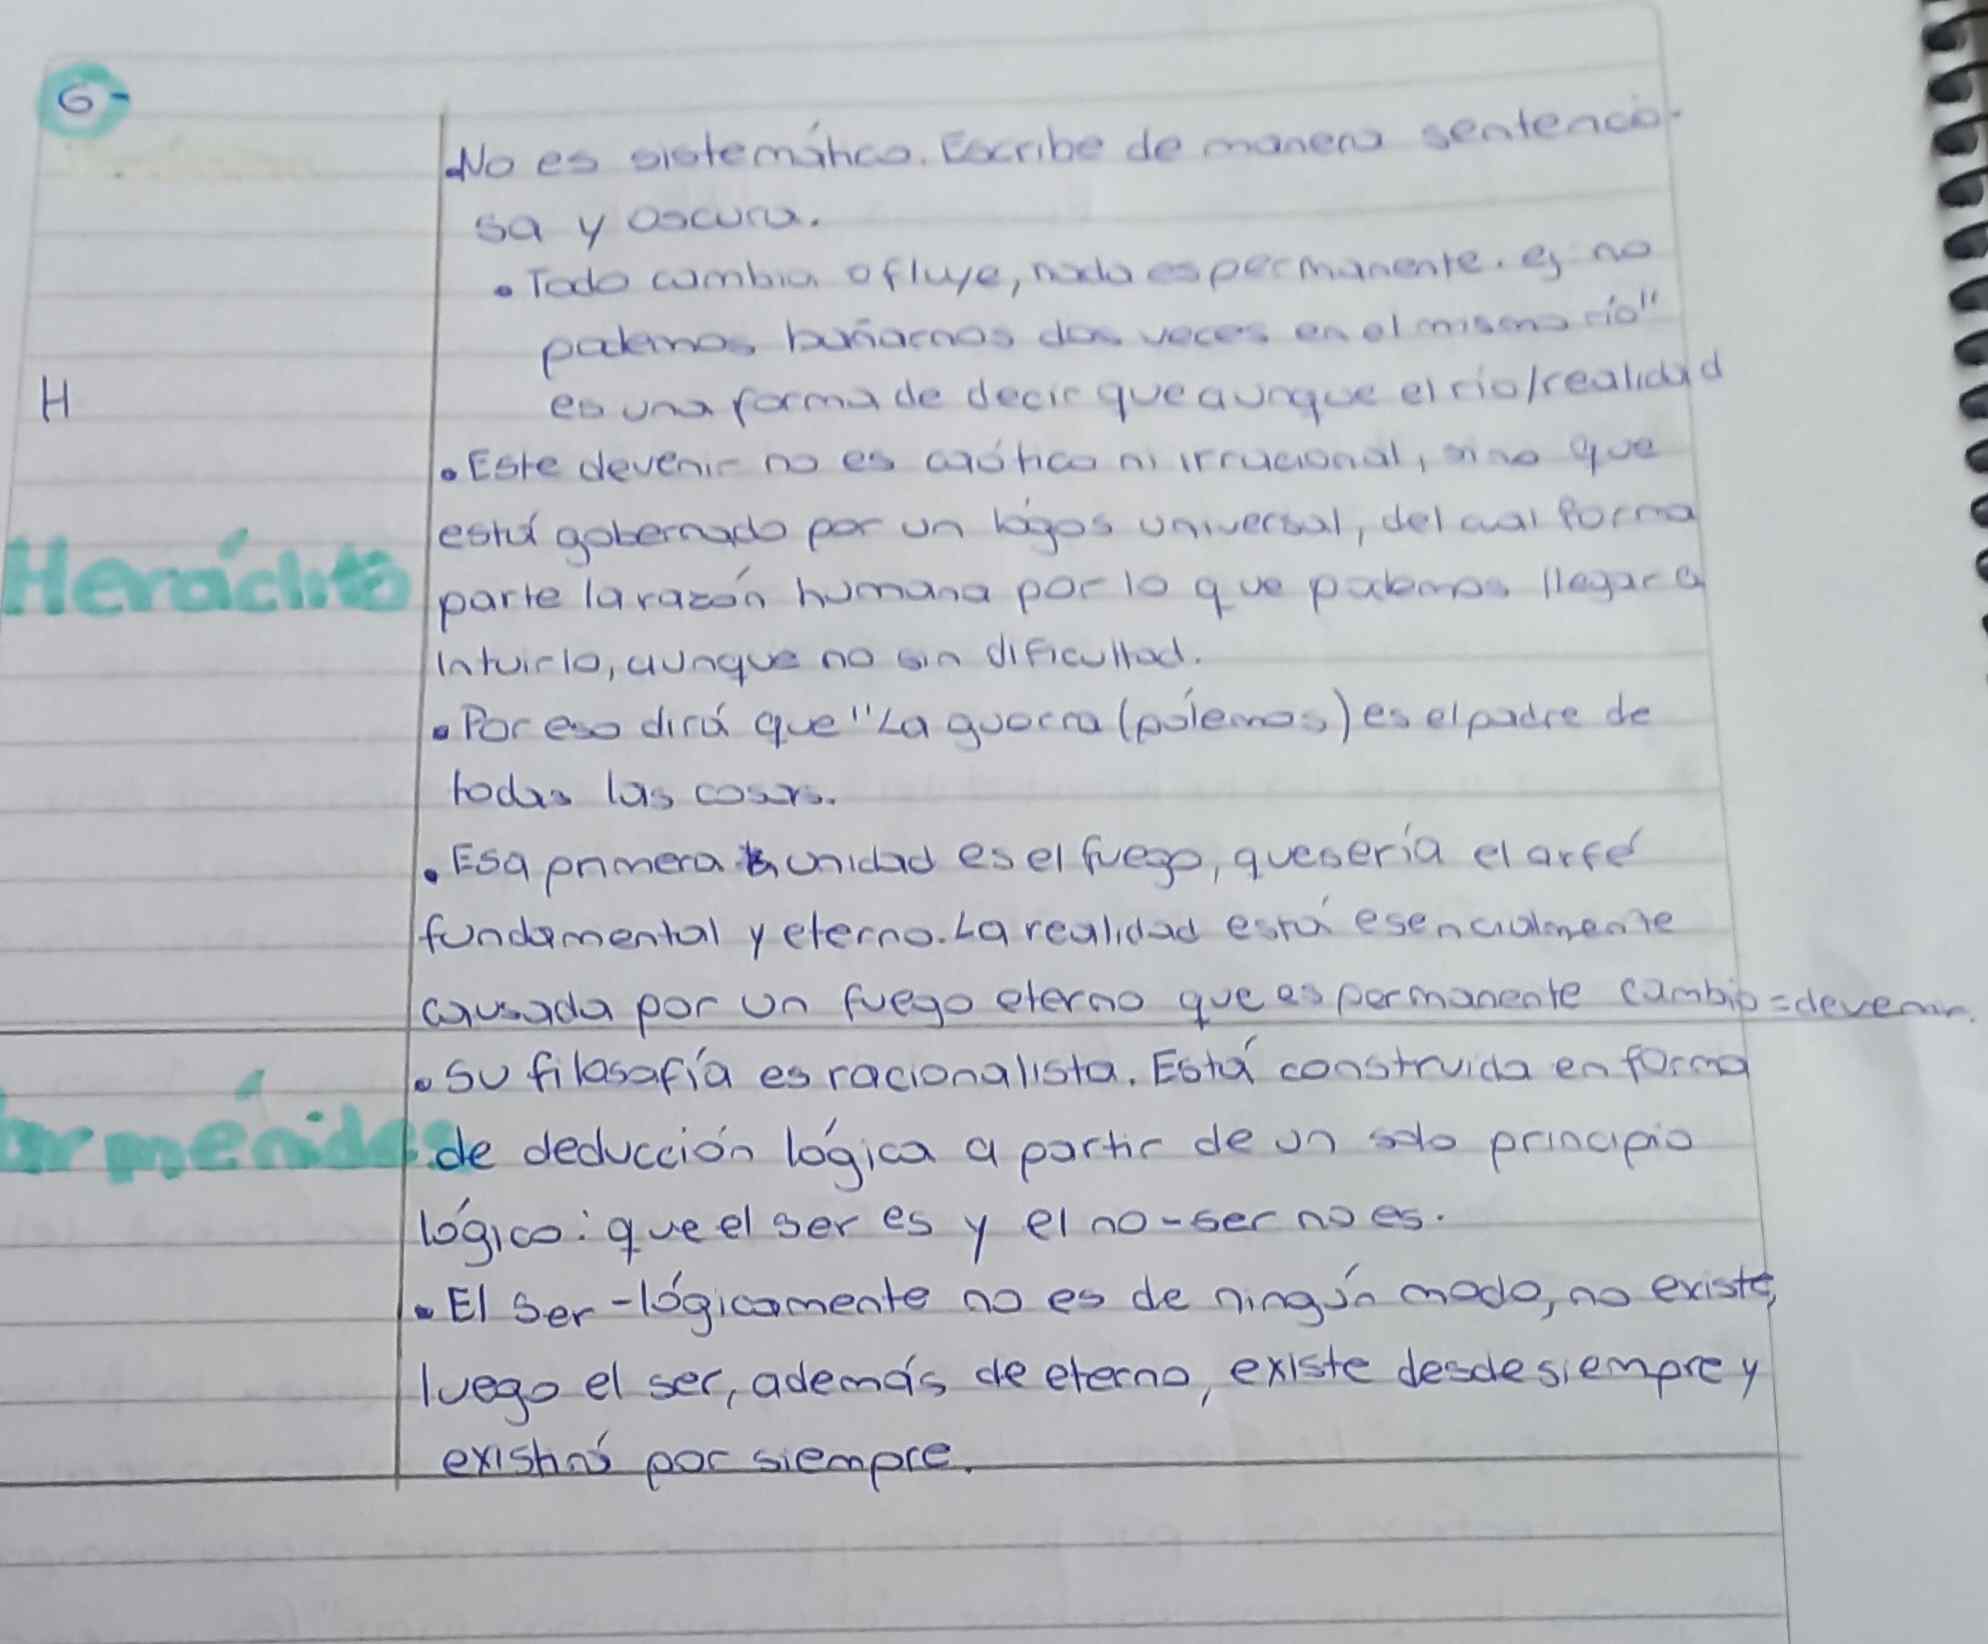 6-
No es sistemático. Escribe de manera sentencio-
sa y oscura.
• Todo cambia o fluye, nada es permanente. ej: no
podemos bañarnos dos veces en el mismo río"
es una forma de decir que aunque el río/realidad
H
• Este devenir no es caótico ni irracional, sino que
está gobernado por un lógos universal, del cual forma
Heráclito
parte la razón humana por lo que podemos llegar a
intuirlo, aunque no sin dificultad.
• Por eso dirá que "La guerra (pólemos) es el padre de
todas las cosas.
• Esa primera unidad es el fuego, que sería el arfé
fundamental y eterno. La realidad está esencialmente
causada por un fuego eterno que es permanente cambio = devenir.
• Su filosofía es racionalista. Está construida en forma
arménides
de deducción lógica a partir de un solo principio
lógico: que el ser es y el no-ser no es.
• El Ser - lógicamente no es de ningún modo, no existe,
luego el ser, además de eterno, existe desde siempre y
existirá por siempre.